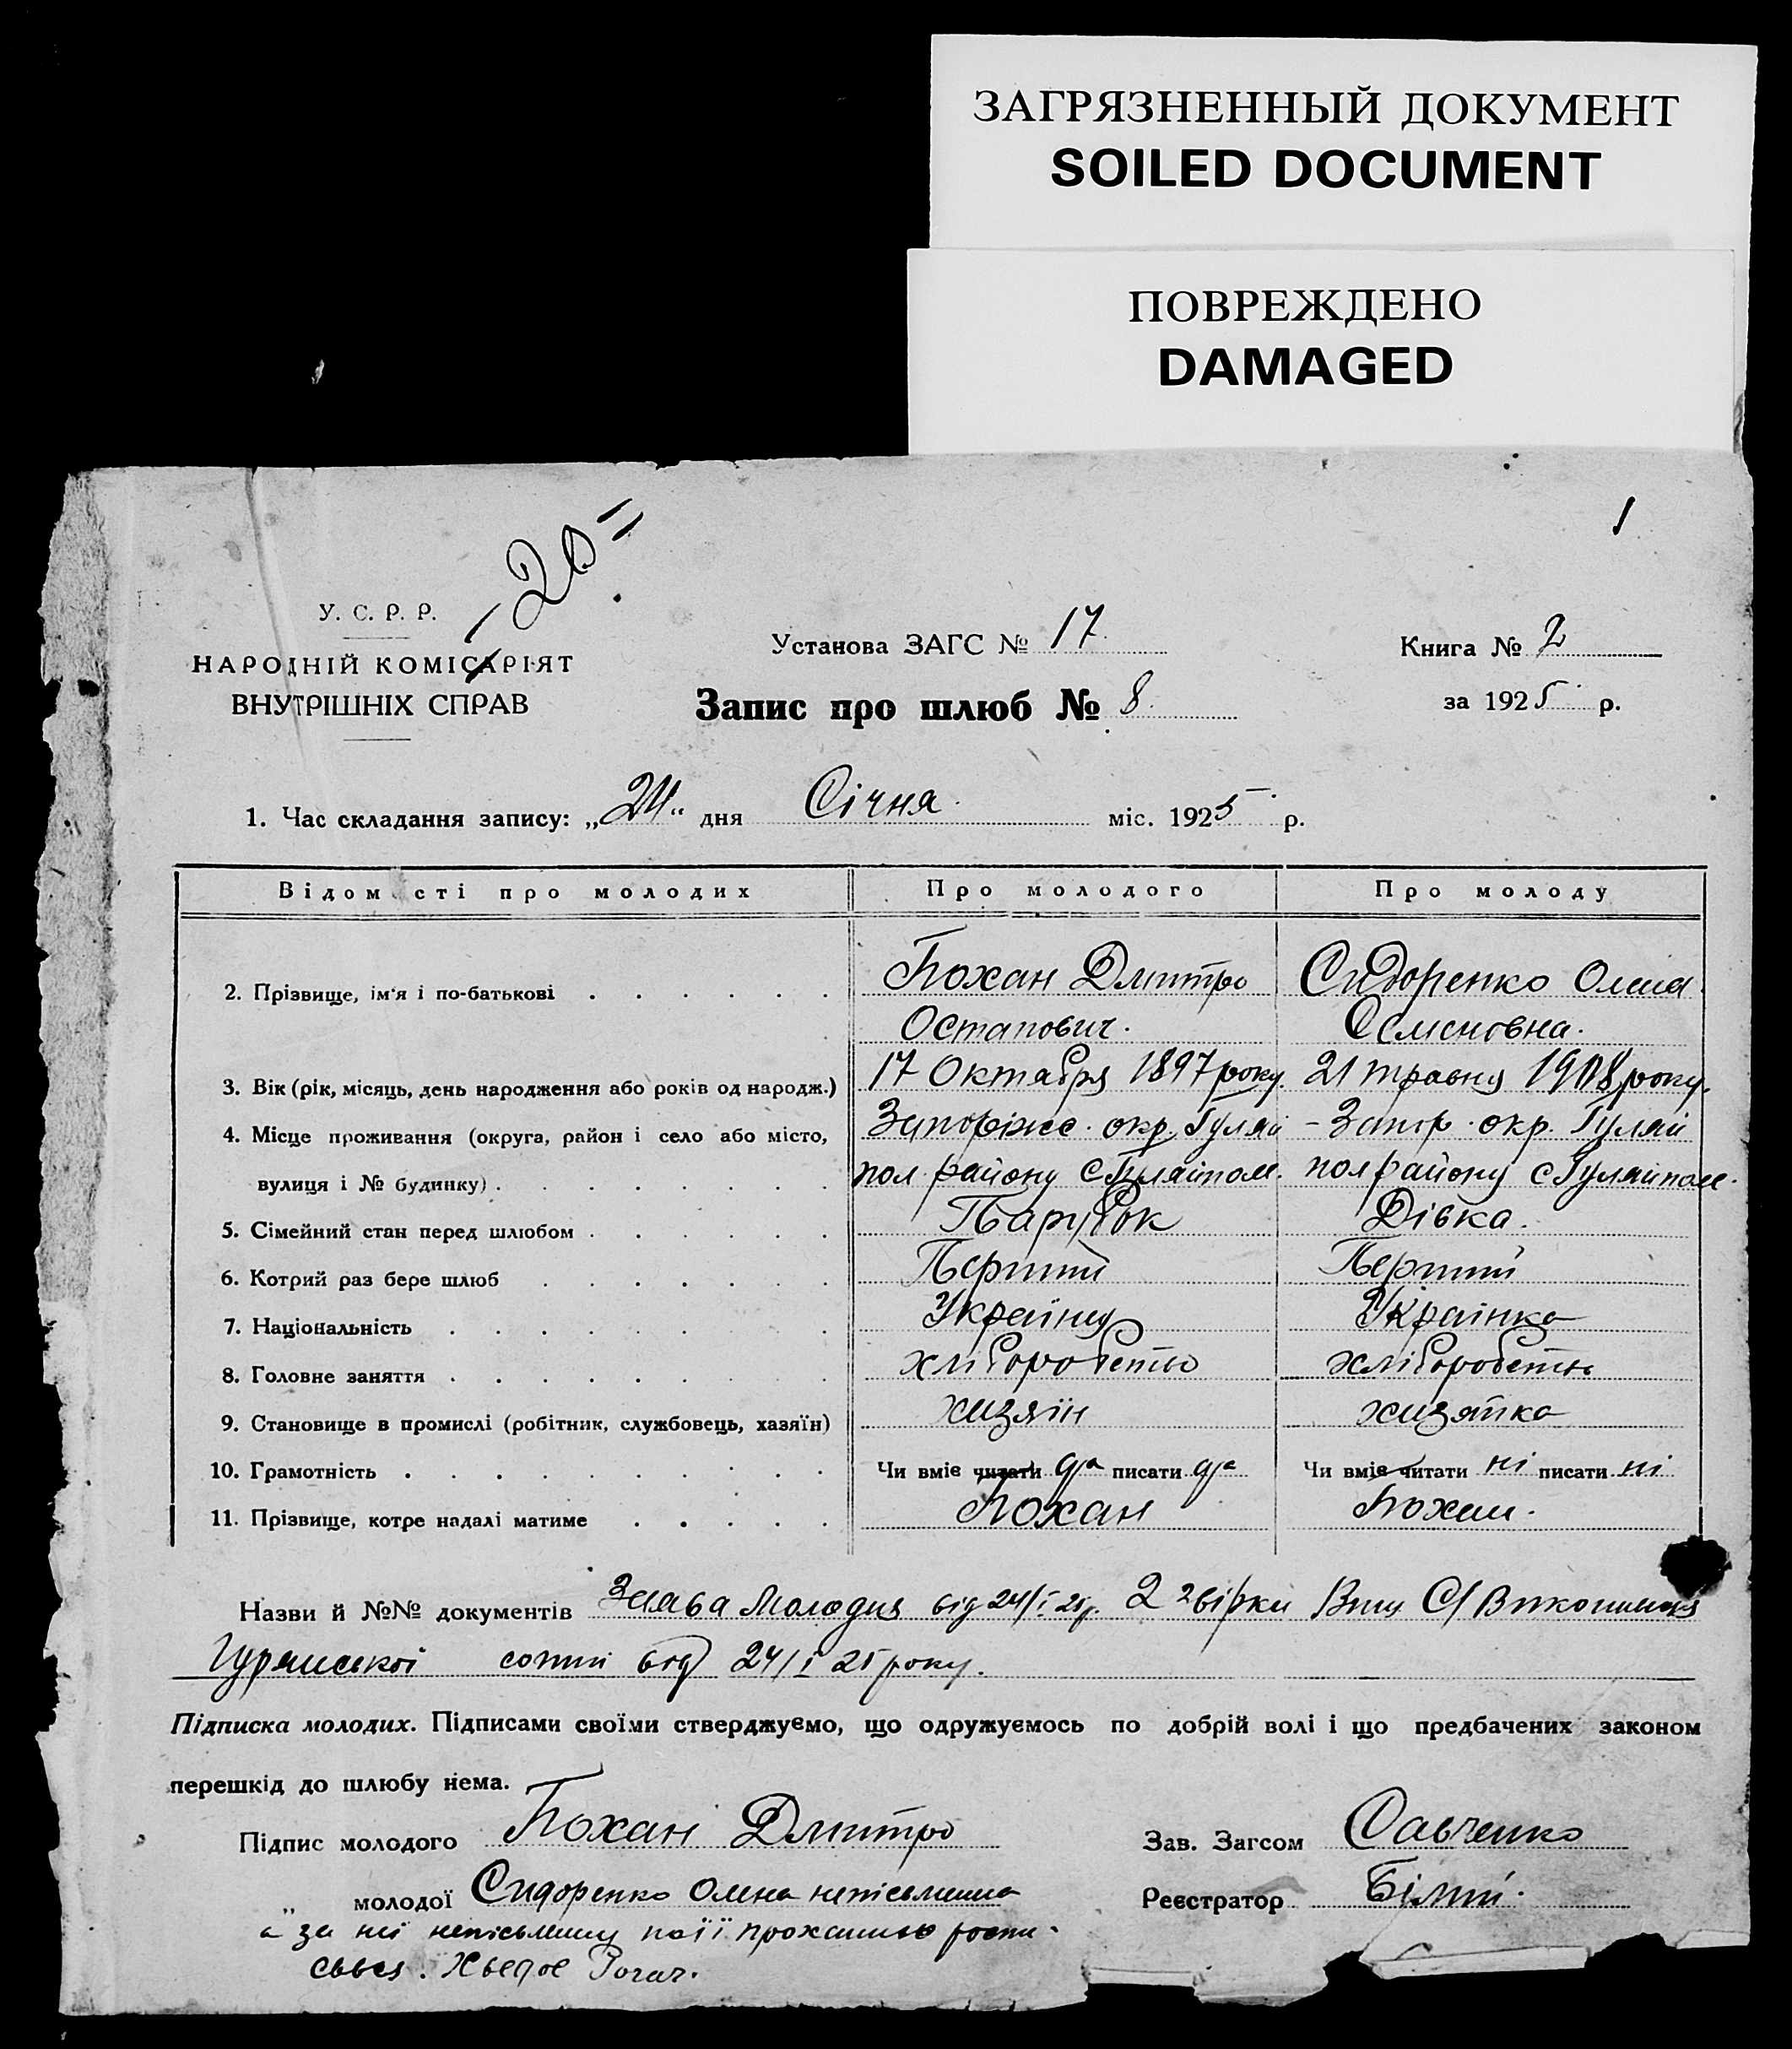 ЗАГРЯЗНЕННЫЙ ДОКУМЕНТ
SOILED DOCUMENT
ПОВРЕЖДЕНО
DAMAGED
1
-20=
У. С. Р. Р.
НАРОДНІЙ КОМІСАРІЯТ
ВНУТРІШНІХ СПРАВ
Установа ЗАГС № 17
Книга № 2
Запис про шлюб № 8.
за 1925 р.
1. Час складання запису: „24“ дня Січня міс. 1925 р.
Відомості про молодих Про молодого Про молоду
2. Прізвище, ім'я і по-батькові Похан Дмитро Сидоренко Олена
Остапович. Семеновна.
3. Вік (рік, місяць, день народження або років од народж.) 17 Октября 1897 року. 21 травня 1908 року.
4. Місце проживання (округа, район і село або місто, Запоріже. окр. Гуляй - Запор. окр. Гуляй
вулиця і № будинку) пол. району с Гуляйполе. пол району с Гуляйполе.
5. Сімейний стан перед шлюбом Парубок Дівка.
6. Котрий раз бере шлюб Перший Перший
7. Національність Українец Українка
8. Головне заняття хліборобство хліборобство
9. Становище в промислі (робітник, службовець, хазяїн) хазяїн хазяйка
10. Грамотність Чи вміє читати да писати да Чи вміє читати ні писати ні
11. Прізвище, котре надалі матиме Похан Похан.
Назви й №№ документів Заява Молодих від 24/I 25р. 2
сотні від 24/I 25 року.
Підписка молодих. Підписами своїми стверджуємо, що одружуємось по добрій волі і що предбачених законом
перешкід до шлюбу нема.
Підпис молодого Похан Дмитро Зав. Загсом Савченко
„ молодої Сидоренко Олена непісьменна Реєстратор Білий.
а за неї непісьменну по її проханню роспи-
свався. Хведос Рогач.